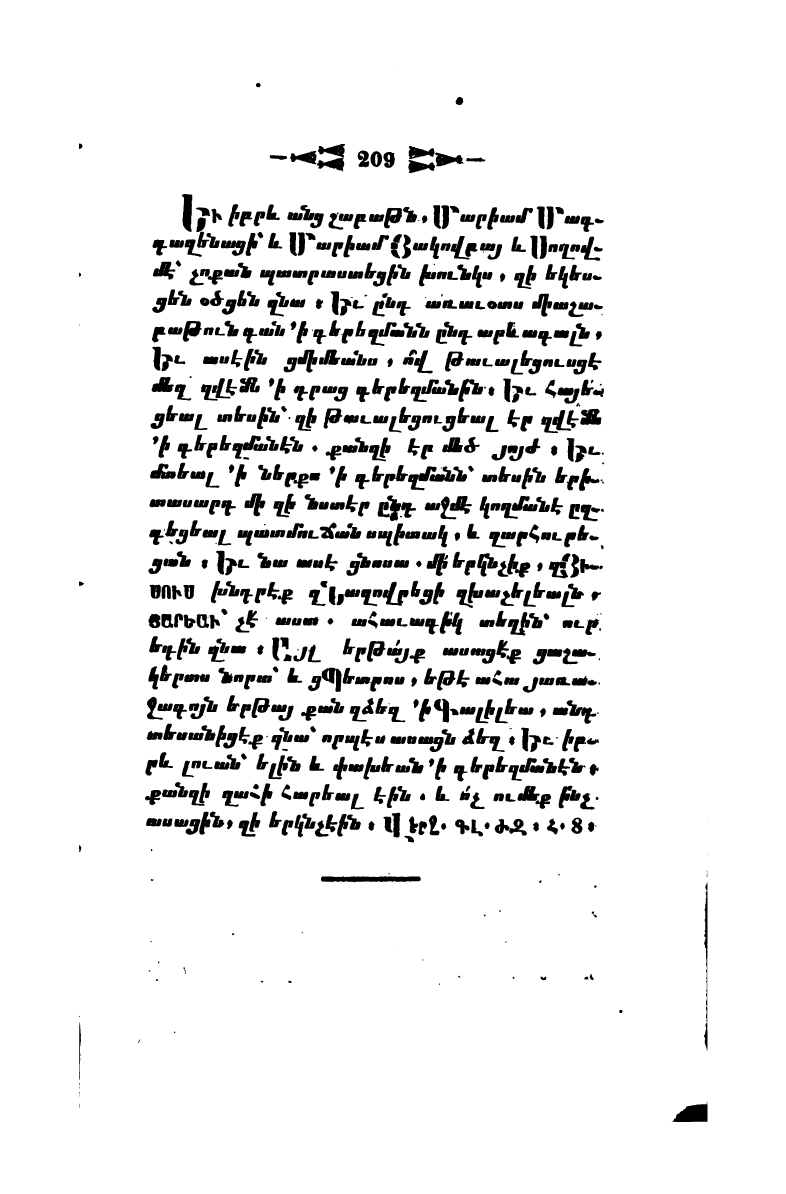 209
Եւ իբրև անց շաբաթն, Մարիամ Մագ-
դաղենացի՝ և Մարիամ Յակովբայ և Սողով-
մէ՝ չոքան պատրաստեցին խունկս, զի եկես-
ցեն օծցեն զնա։ Եւ ընդ առաւօտս միաշա-
բաթուն գան ՚ի գերեզմանն ընդ արևագալն,
Եւ ասէին ցմիմեանս, ո՞վ թաւալեցուսցէ
մեզ զվէմն ՚ի դրաց գերեզմանին։ Եւ հայե-
ցեալ տեսին՝ զի թաւալեցուցեալ էր զվէմն
՚ի գերեզմանէն. քանզի էր մեծ յոյժ։ Եւ
մտեալ ՚ի ներքս ՚ի գերեզմանն՝ տեսին երի-
տասարդ մի զի նստէր ընդ աջմէ կողմանէ ըզ-
գեցեալ պատմուճան սպիտակ, և զարհուրե-
ցան։ Եւ նա ասէ ցնոսա. մի՛ երկնչիք, զՅԻ-
ՍՈՒՍ խնդրէք զՆազովրեցի զխաչելեալն,
ՅԱՐԵԱՒ՝ չէ աստ. ահաւադիկ տեղին՝ ուր
եդին զնա։ Այլ երթա՛յք ասացէք ցաշա-
կերտս նորա՝ և ցՊետրոս, եթէ ահա յառա-
ջագոյն երթայ քան զձեզ ՚ի Գալիլեա, անդ
տեսանիցէք զնա՝ որպէս ասացն ձեզ։ Եւ իբ-
րև լուան՝ ելին և փախեան ՚ի գերեզմանէն։
քանզի զահի հարեալ էին. և ո՛չ ումեք ինչ
ասացին, զի երկնչէին։ Վերջ. ԳԼ. ԺԶ։ Հ. 8։